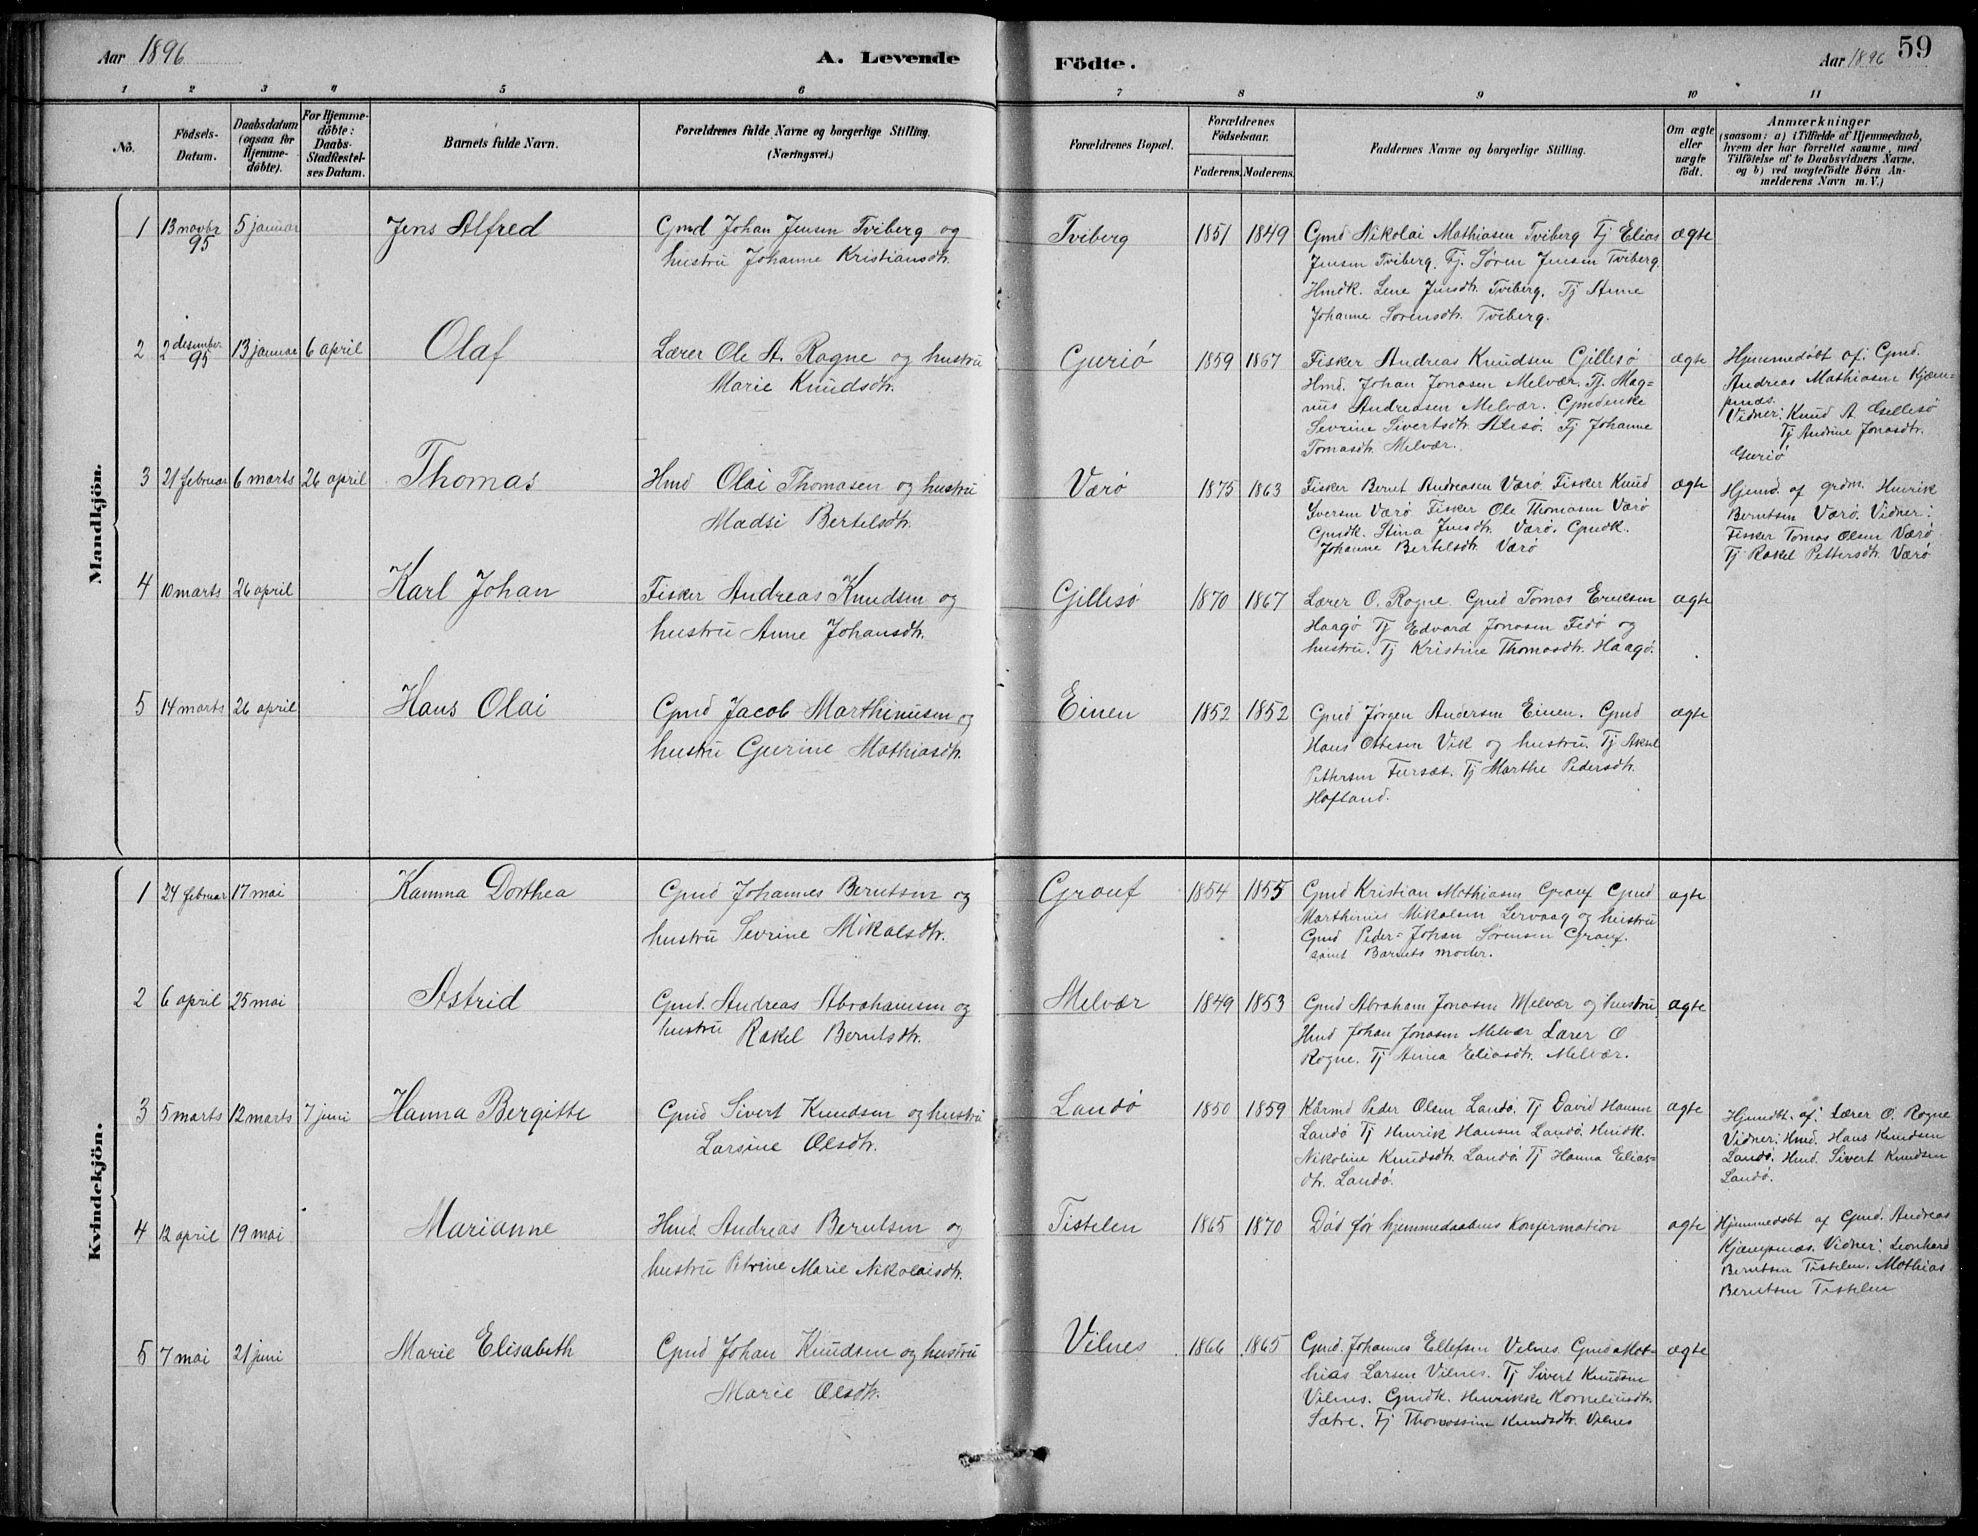 Aar 1896
A. Levende Födte.
Aar 1896 59
1 2 3 4 5 6 7 8 9 10 11
No.
Födsels-
Datum.
Daabsdatum
(ogsaa for
Hjemme-
döbte).
For Hjemme-
döbte:
Daabs-
Stadfæstel-
ses Datum.
Barnets fulde Navn.
Forældrenes fulde Navne og borgerlige Stilling.
(Næringsvei.)
Forældrenes Bopæl.
Forældrenes
Födselsaar.
Faderens. Moderens.
Faddernes Navne og borgerlige Stilling.
Om ægte
eller
uægte
födt.
Anmærkninger
(saasom: a) i Tilfælde af Hjemmedaab,
hvem der har forrettet samme, med
Tilföielse af to Daabsvidners Navne,
og b) ved uægtefödte Börn An-
melderens Navn m. V.)
Mandkjön.
1 13 novbr 95 5 januar Jens Alfred
Gmd Johan Jensen Tviberg og
hustru Johanne Kristiansdtr.
Tviberg 1851 1849
Gmd Nikolai Mathiasen Tviberg Tj Elias
Jensen Tviberg. Tj. Søren Jensen Tviberg.
Hmdk. Lene Jensdtr. Tviberg. Tj Anne
Johanne Sørensdtr. Tviberg.
ægte
2 2 desember 95 13 januar 6 april Olaf
Lærer Ole A. Rogne og hustru
Marie Knudsdtr.
Guriø 1859 1867
Fisker Andreas Knudsen Gillesø
Hmd. Johan Jonasen Melvær. Tj. Mag-
nus Andreasen Melvær. Gmdenke
Sevrine Sivertsdtr. Alesø. Tj Johanne
Tomasdtr. Melvær.
ægte
Hjemmedøbt af: Gmd.
Andreas Mathiasen Kjæm-
pnæs.
Vidner: Knud A. Gillesø
Tj Andrine Jonasdtr.
Guriø
3 21 februar 6 marts 26 april Thomas
Hmd Olai Thomasen og hustru
Madsi Bertelsdtr.
Værø 1875 1863
Fisker Bernt Andreasen Værø. Fisker Knud
Iversen Værø Fisker Ole Thomasen Værø
Gmdk. Stina Jensdtr. Værø. Gmdk.
Johanne Bertelsdtr. Værø
ægte
Hjemd. af grdm. Henrik
Berntsen Værø. Vidner:
Fisker Tomas Olsen Værø
Tj Rakel Pettersdtr. Værø
4 10 marts 26 april Karl Johan
Fisker Andreas Knudsen og
hustru Anne Johansdtr.
Gillesø 1870 1867
Lærer O. Rogne. Gmd Tomas Eriksen
Haagø Tj Edvard Jonasen Fedø og
hustru. Tj Kristine Thomasdtr. Haagø.
ægte
5 14 marts 26 april Hans Olai
Gmd Jacob Marthinusen og
hustru Gurine Mathiasdtr.
Einen 1852 1852
Gmd Jørgen Andersen Einen. Gmd
Hans Ottesen Vik og hustru. Tj Aksel
Pettersen Furset. Tj Marthe Pedersdtr.
Hofland.
ægte
Kvindekjön.
1 24 februar 17 mai Kamma Dorthea
Gmd Johannes Berntsen og
hustru Sevrine Mikalsdtr.
Grauf 1854 1855
Gmd Kristian Mathiasen Grauf Gmd
Marthines Mikalsen Lervaag og hustru
Gmd Peder Johan Sørensen Grauf.
samt Barnets moder.
ægte
2 6 april 25 mai Astrid
Gmd. Andreas Abrahamsen og
hustru Rakel Berntsdtr.
Melvær 1849 1853
Gmd Abraham Jonasen Melvær og hustru
Hmd Johan Jonasen Melvær Lærer O
Rogne. Tj Anna Eliasdtr. Melvær.
ægte
3 5 marts 12 marts 7 juni Hanna Bergitte
Gmd Sivert Knudsen og hustru
Larsine Olsdtr.
Landø 1850 1859
Kårmd Peder Olsen Landø. Tj David Hansen
Landø Tj Henrik Hansen Landø. Hmdk.
Nikoline Knudsdtr. Landø. Tj Hanna Elias-
dtr. Landø.
ægte
Hjemdbt. af: Lærer O. Rogne
Vidner: Hmd. Hans Knudsen
Landø. Hmd. Sivert Knudsen
Landø.
4 12 april 19 mai Marianne
Hmd Andreas Berntsen og
hustru Petrine Marie Nikolaisdtr.
Tistelen 1865 1870
Død før hjemmedaabens Konfirmation
ægte
Hjemmedøbt af Gmd. Andreas
Kjæmpenæs. Vidner: Leonhard
Berntsen Tistelen. Mathias
Berntsen Tistelen
5 7 mai 21 juni Marie Elisabeth
Gmd Johan Knudsen og hustru
Marie Olsdtr.
Vilnes 1866 1865
Gmd. Johannes Ellefsen Vilnes. Gmd Mat-
hias Larsen Vilnes. Tj Sivert Knudsen
Vilnes. Gmdk. Henrikke Korneliusdtr.
Sætre. Tj Thomassine Knudsdtr. Vilnes
ægte